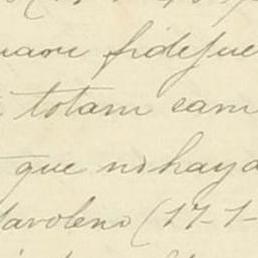 fidefue
totam eam
que no haya
Javoleno (17-1-